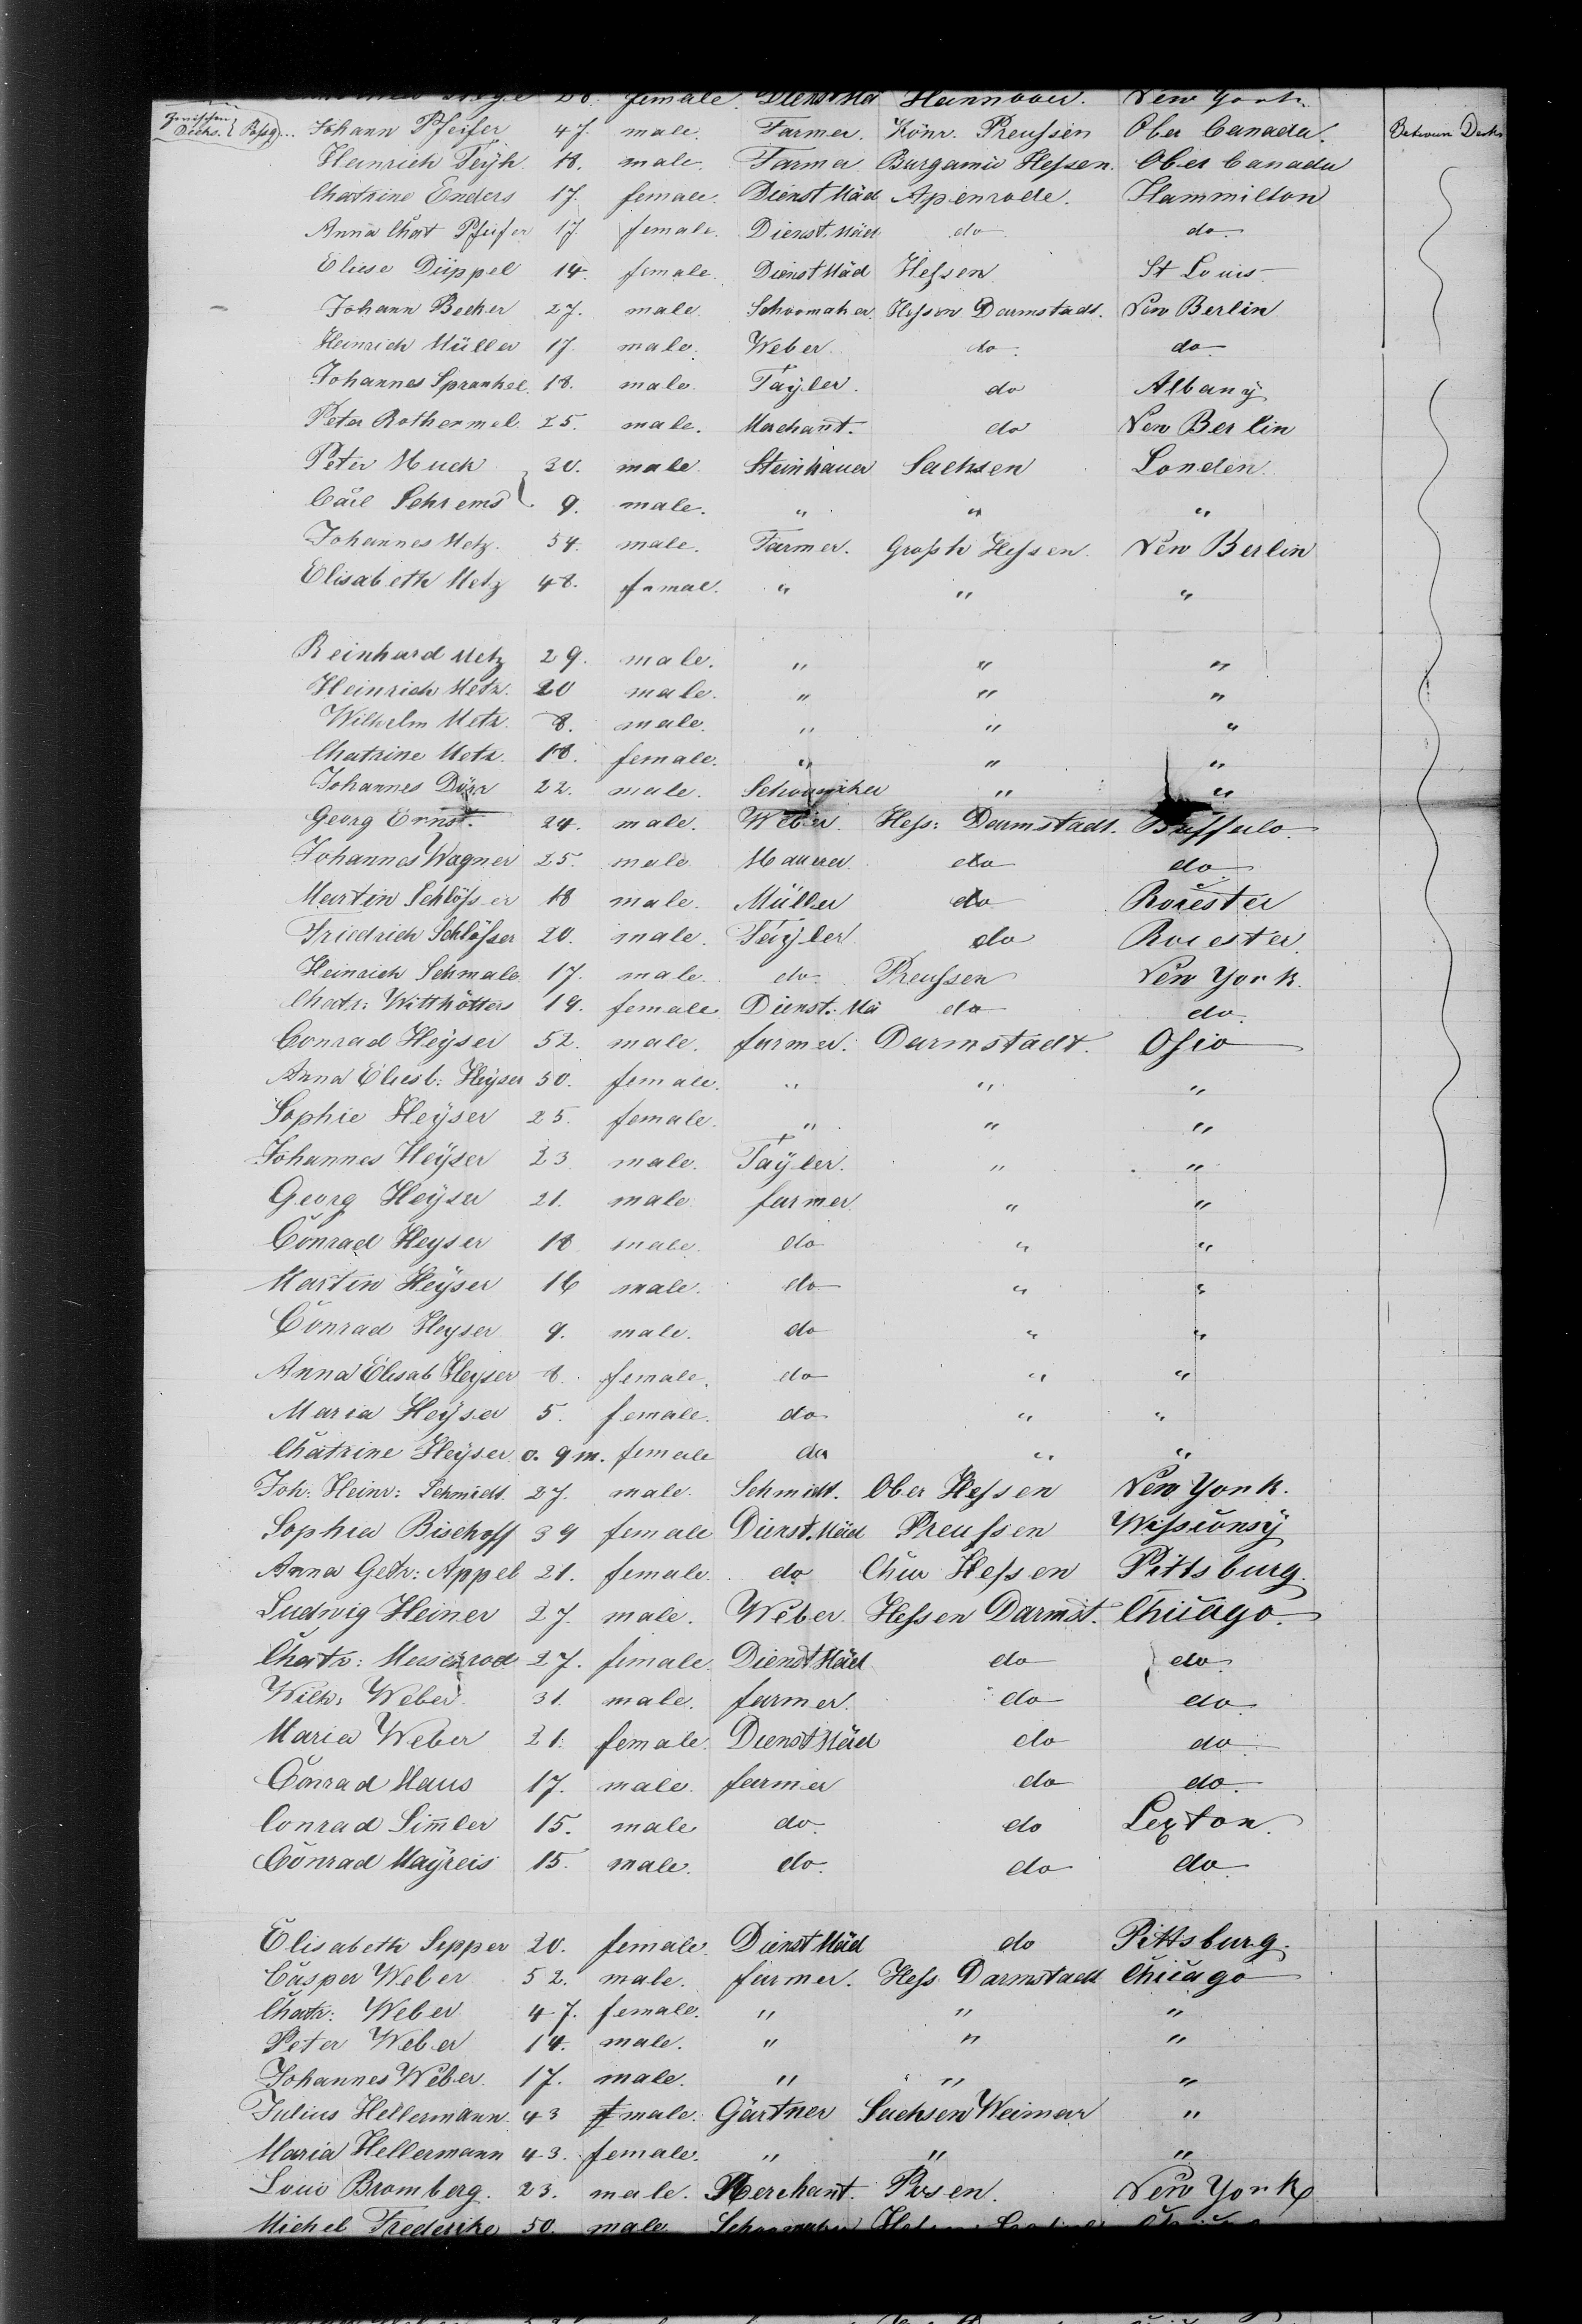 female. Hannover. New York.
Zwischen Decks. Passg... Johann Pfeifer 47. male. Farmer. Könr. Preußen Ober Canada. Between Decks
Heinrich 18. male. Farmer Heßen. Ober Canada
Chatrine Enders 17. female. Dienst Mäd Apenrode. Hammilton
Anna Chat Pfeifer 17. female. Dienst. Mäd do do.
Eliese Düppel 14. female. Dienst Mäd Heßen St Louis
Johann Becker 27. male. Schoomaker. Heßen Darmstadt. New Berlin
Heinrich Müller 17. male. Weber. do. do
Johannes Sprankel. 18. male. Taÿler. do Albanÿ
Peter Rothermel 25. male. Merchant. do New Berlin
Peter Muck 30. male. Steinhauer Sachsen Londen.
Carl Schrems 9. male. " " "
Johannes Metz. 54. male. Farmer. Großh Heßen. New Berlin
Elisabeth Metz 48. femal. " " "
Reinhard Metz 29. male. " " "
Heinrich Metz. 20 male. " " "
Wilhelm Metz. 8. male. " " "
Chatrine Metz. 18. female. " " "
Johannes Dörr 22. male. Schoomaker " "
Georg Ernst. 24. male. Weber. Heß: Darmstadt. Buffulo
Johannes Wagner 25. male. Maurer. do do
Martin Schlößer 18 male. Müller do Rocester
Friedrich Schlößer 20. male. Taÿler do Rocester.
Heinrich Schmale 17. male. do. Preußen New York.
Chatr: Witthötters 19. female Dienst. Mä do do.
Conrad Heÿser 52. male. farmer. Darmstadt. Ohio
Anna Eliesb: Heÿser 50. female. " " "
Sophie Heÿser 25. female. " " "
Johannes Heÿser 23 male. Taÿler. " "
Georg Heÿser 21. male. farmer. " "
Conrad Heyser 18 male. do " "
Martin Heÿser 16 male. do " "
Conrad Heyser 9. male. do " "
Anna Elisab Heyser 8. female. do " "
Maria Heÿser 5. female. do " "
Chatrine Heÿser 0. 9 m. female do " "
Joh: Heinr: Schmidt. 27. male. Schmidt. Ober Heßen New York.
Sophia Bischoff 39 female Dienst. Mäd Preußen Wißconsÿ
Anna Getr: Appel 21. female. do Chur Heßen Pittsburg.
Ludwig Heiner 27. male. Weber. Heßen Darmst. Chicago.
Chatr: 27. female. Dienst Mäd do do.
Wilh: Weber 31. male. farmer. do do.
Maria Weber 21. female. Dienst Mäd do do.
Conrad Maus 17. male. farmer do do.
Conrad Sim̅ler 15. male do. do Lexton.
Conrad Maÿreis 15. male. do. do do.
Elisabeth Sepper 20. female. Dienst Mäd do Pittsburg.
Casper Weber 52. male. farmer. Heß: Darmstadt Chicago
Chatr: Weber 47. female. " " "
Peter Weber 14. male. " " "
Johannes Weber. 17. male. " " "
Julius Hellermann 43 male. Gärtner Sachsen Weimar "
Maria Hellermann 43. female. " " "
Loui Bromberg. 23. male. Merchant. Posen. New York
Michel Frederike 50. male